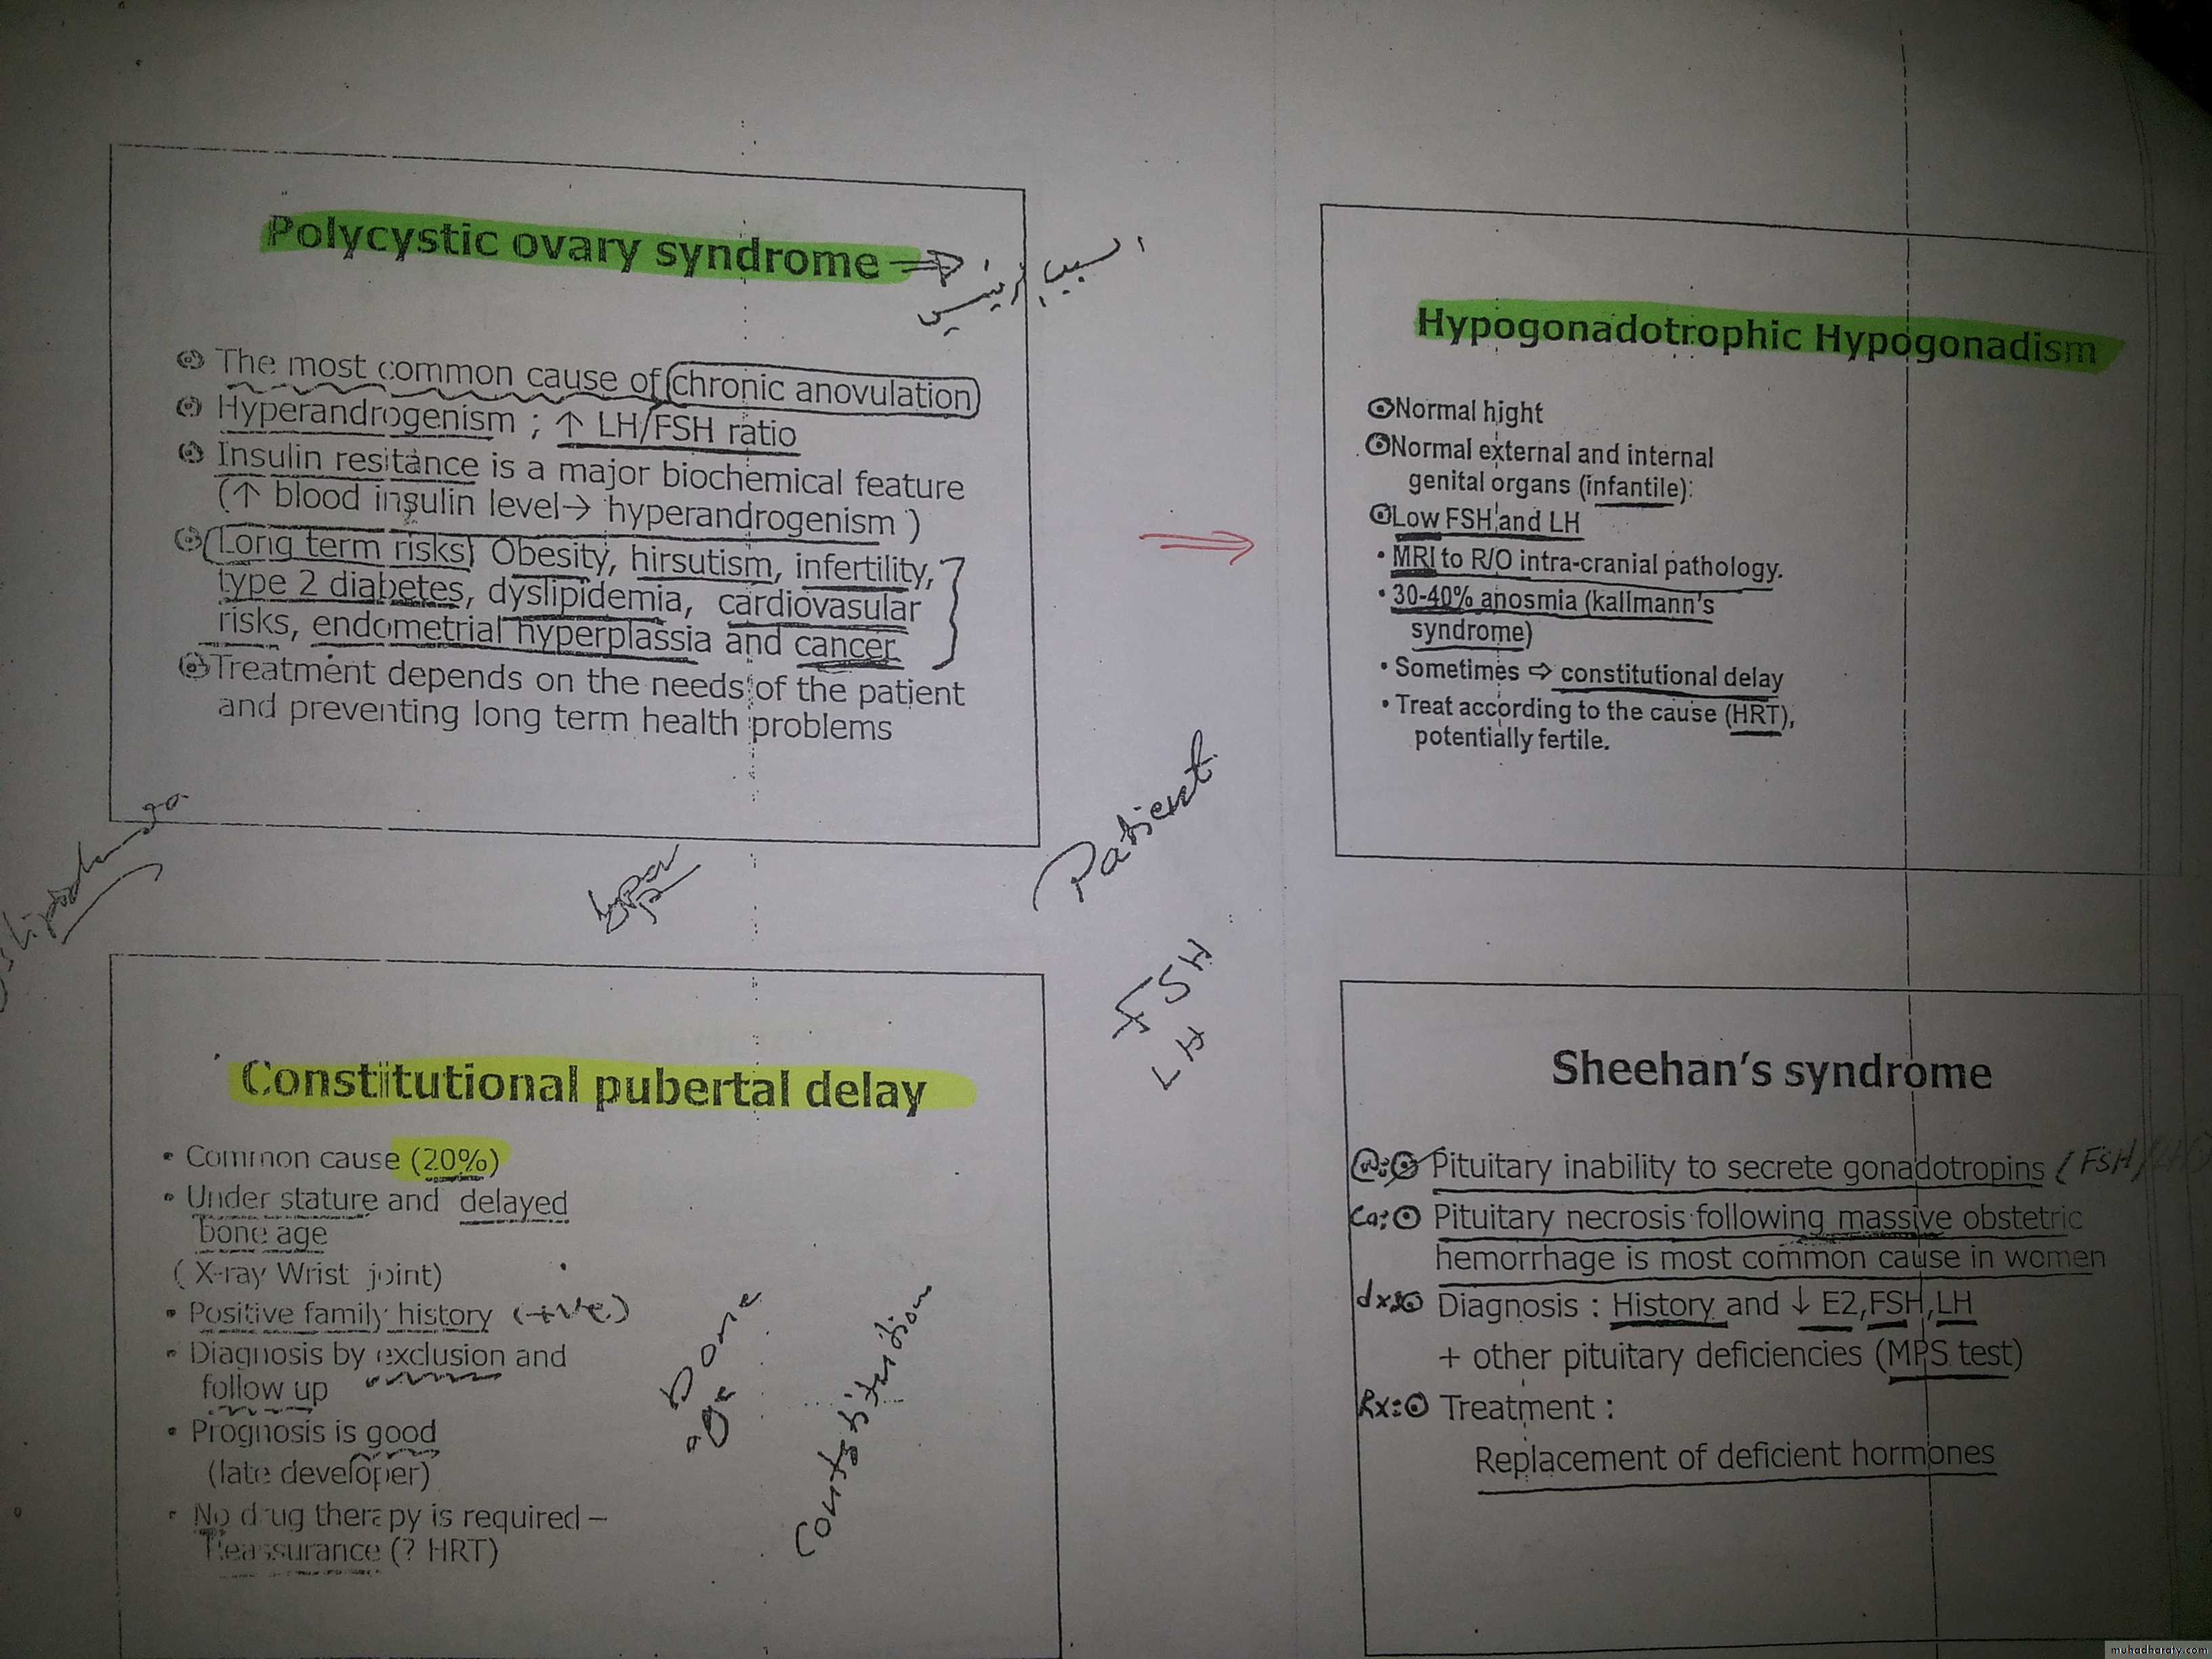 Polycystic ovary syndrome →
السبب الرئيسي
The most common cause of chronic anovulation
Hyperandrogenism ; ↑ LH/FSH ratio
Insulin resitance is a major biochemical feature
(↑ blood insulin level→ hyperandrogenism )
Long term risks Obesity, hirsutism, infertility,
type 2 diabetes, dyslipidemia, cardiovasular
risks, endometrial hyperplassia and cancer.
Treatment depends on the needs of the patient
and preventing long term health problems
Hypogonadotrophic Hypogonadism
Normal hight
Normal external and internal
genital organs (infantile):
Low FSH and LH
• MRI to R/O intra-cranial pathology.
• 30-40% anosmia (kallmann's
syndrome)
• Sometimes ⇨ constitutional delay
• Treat according to the cause (HRT),
potentially fertile.
Patient
FSH
LH
Constitutional pubertal delay
• Common cause (20%)
• Under stature and delayed
bone age
( X-ray Wrist joint)
• Positive family history (+ve)
• Diagnosis by exclusion and
follow up
• Prognosis is good
(late developer)
• No drug therapy is required –
Reassurance (? HRT)
bone
age
Sheehan's syndrome
Pituitary inability to secrete gonadotropins (FSH/LH)
Ca: Pituitary necrosis following massive obstetric
hemorrhage is most common cause in women
dx: Diagnosis : History and ↓ E2,FSH,LH
+ other pituitary deficiencies (MPS test)
Rx: Treatment :
Replacement of deficient hormones
muhadharaty.com